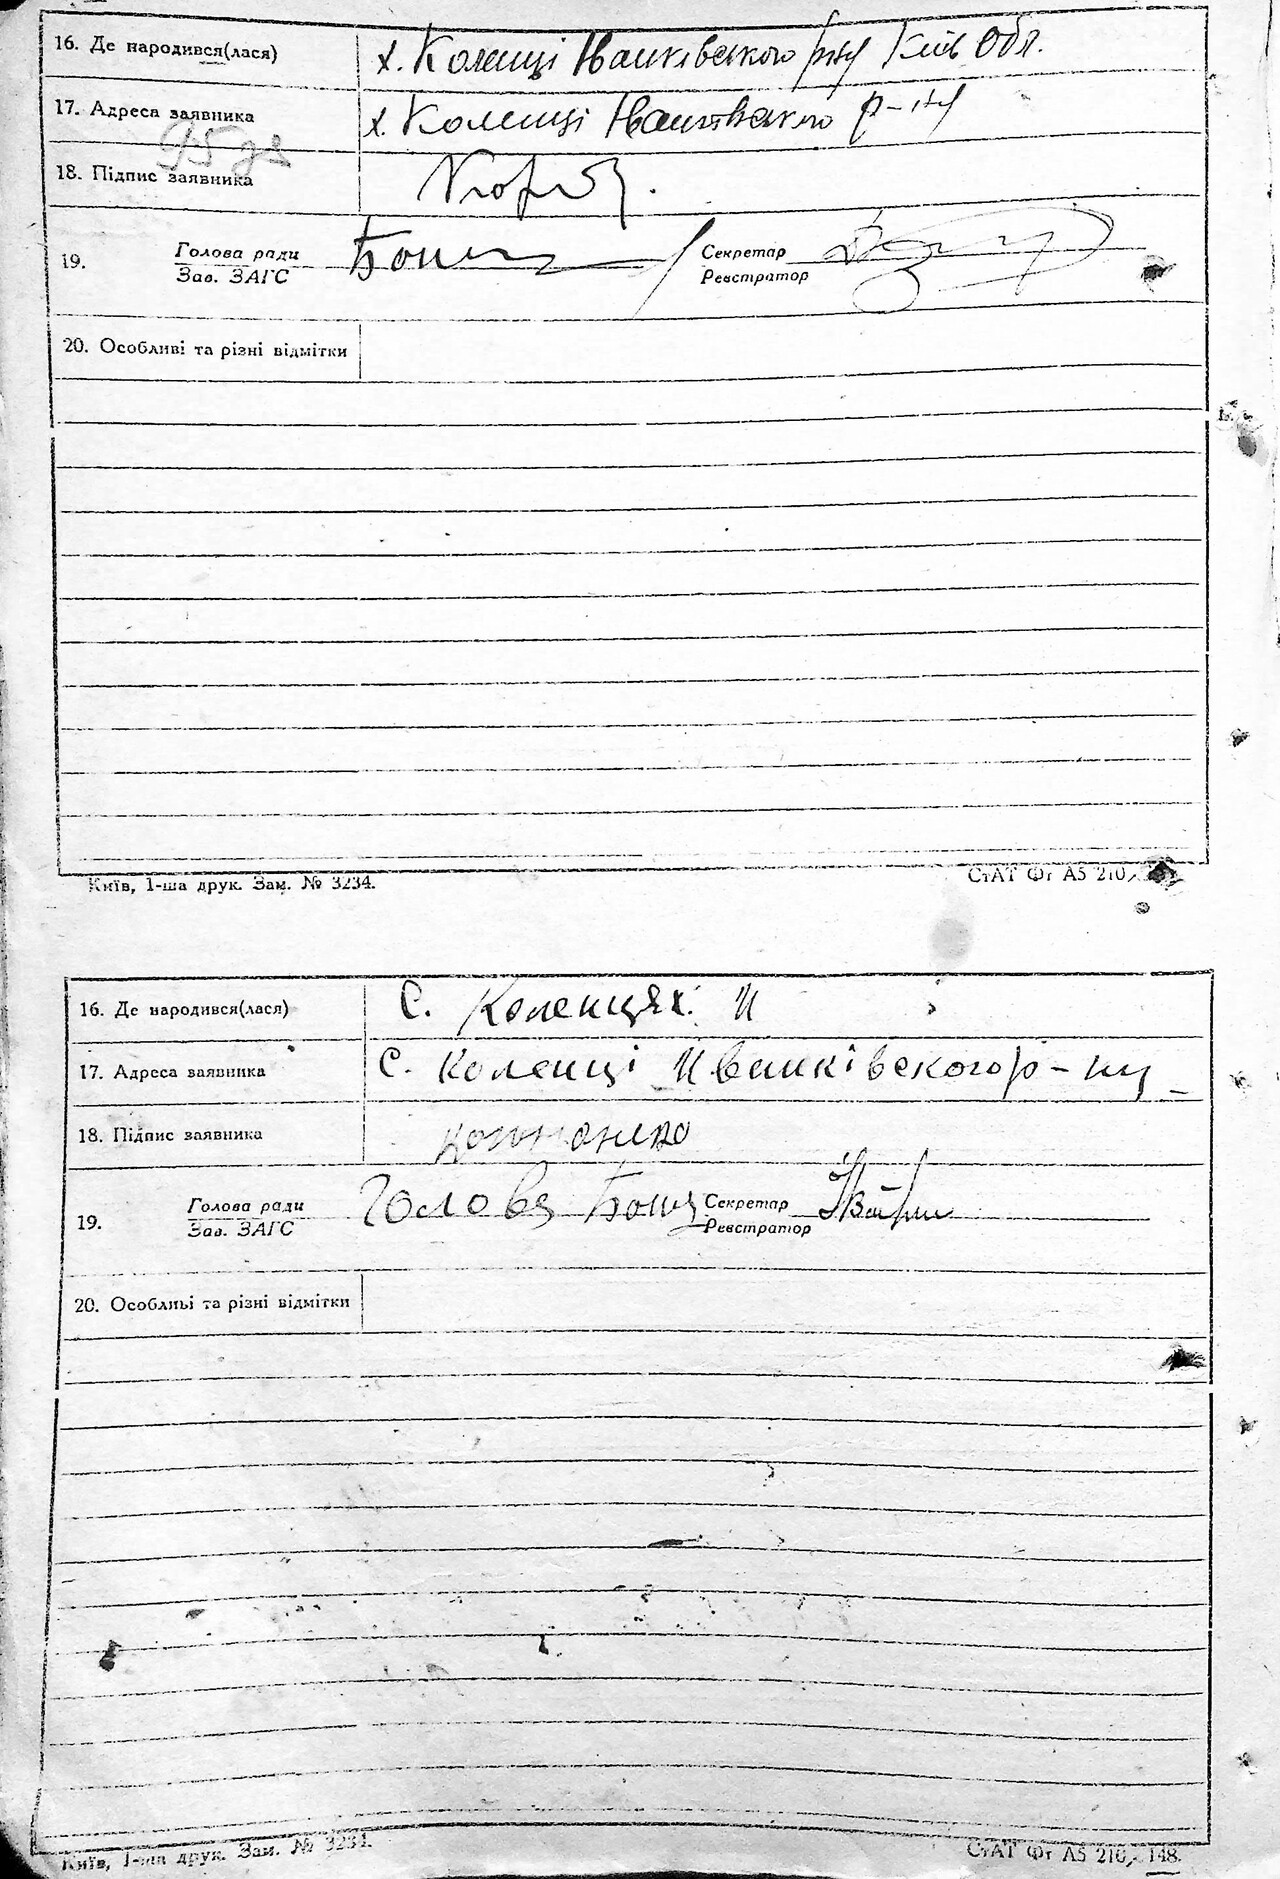 16. Де народився(лася) х. Коленці Іванківського р-ну Київ Обл.
17. Адреса заявника х. Коленці Іванківського р-ну
95
18. Підпис заявника
19. Голова ради Секретар
Зав. ЗАГС Реєстратор
20. Особливі та різні відмітки
Київ, 1-ша друк. Зам. № 3234. СтАТ Фт А5 210
16. Де народився(лася) С. Коленцях И
17. Адреса заявника С. Коленці Иванківского р-ну
18. Підпис заявника
19. Голова ради Голова Секретар
Зав. ЗАГС Реєстратор
20. Особливі та різні відмітки
Київ, 1-ша друк. Зам. № 3234. СтАТ Фт А5 210 148.